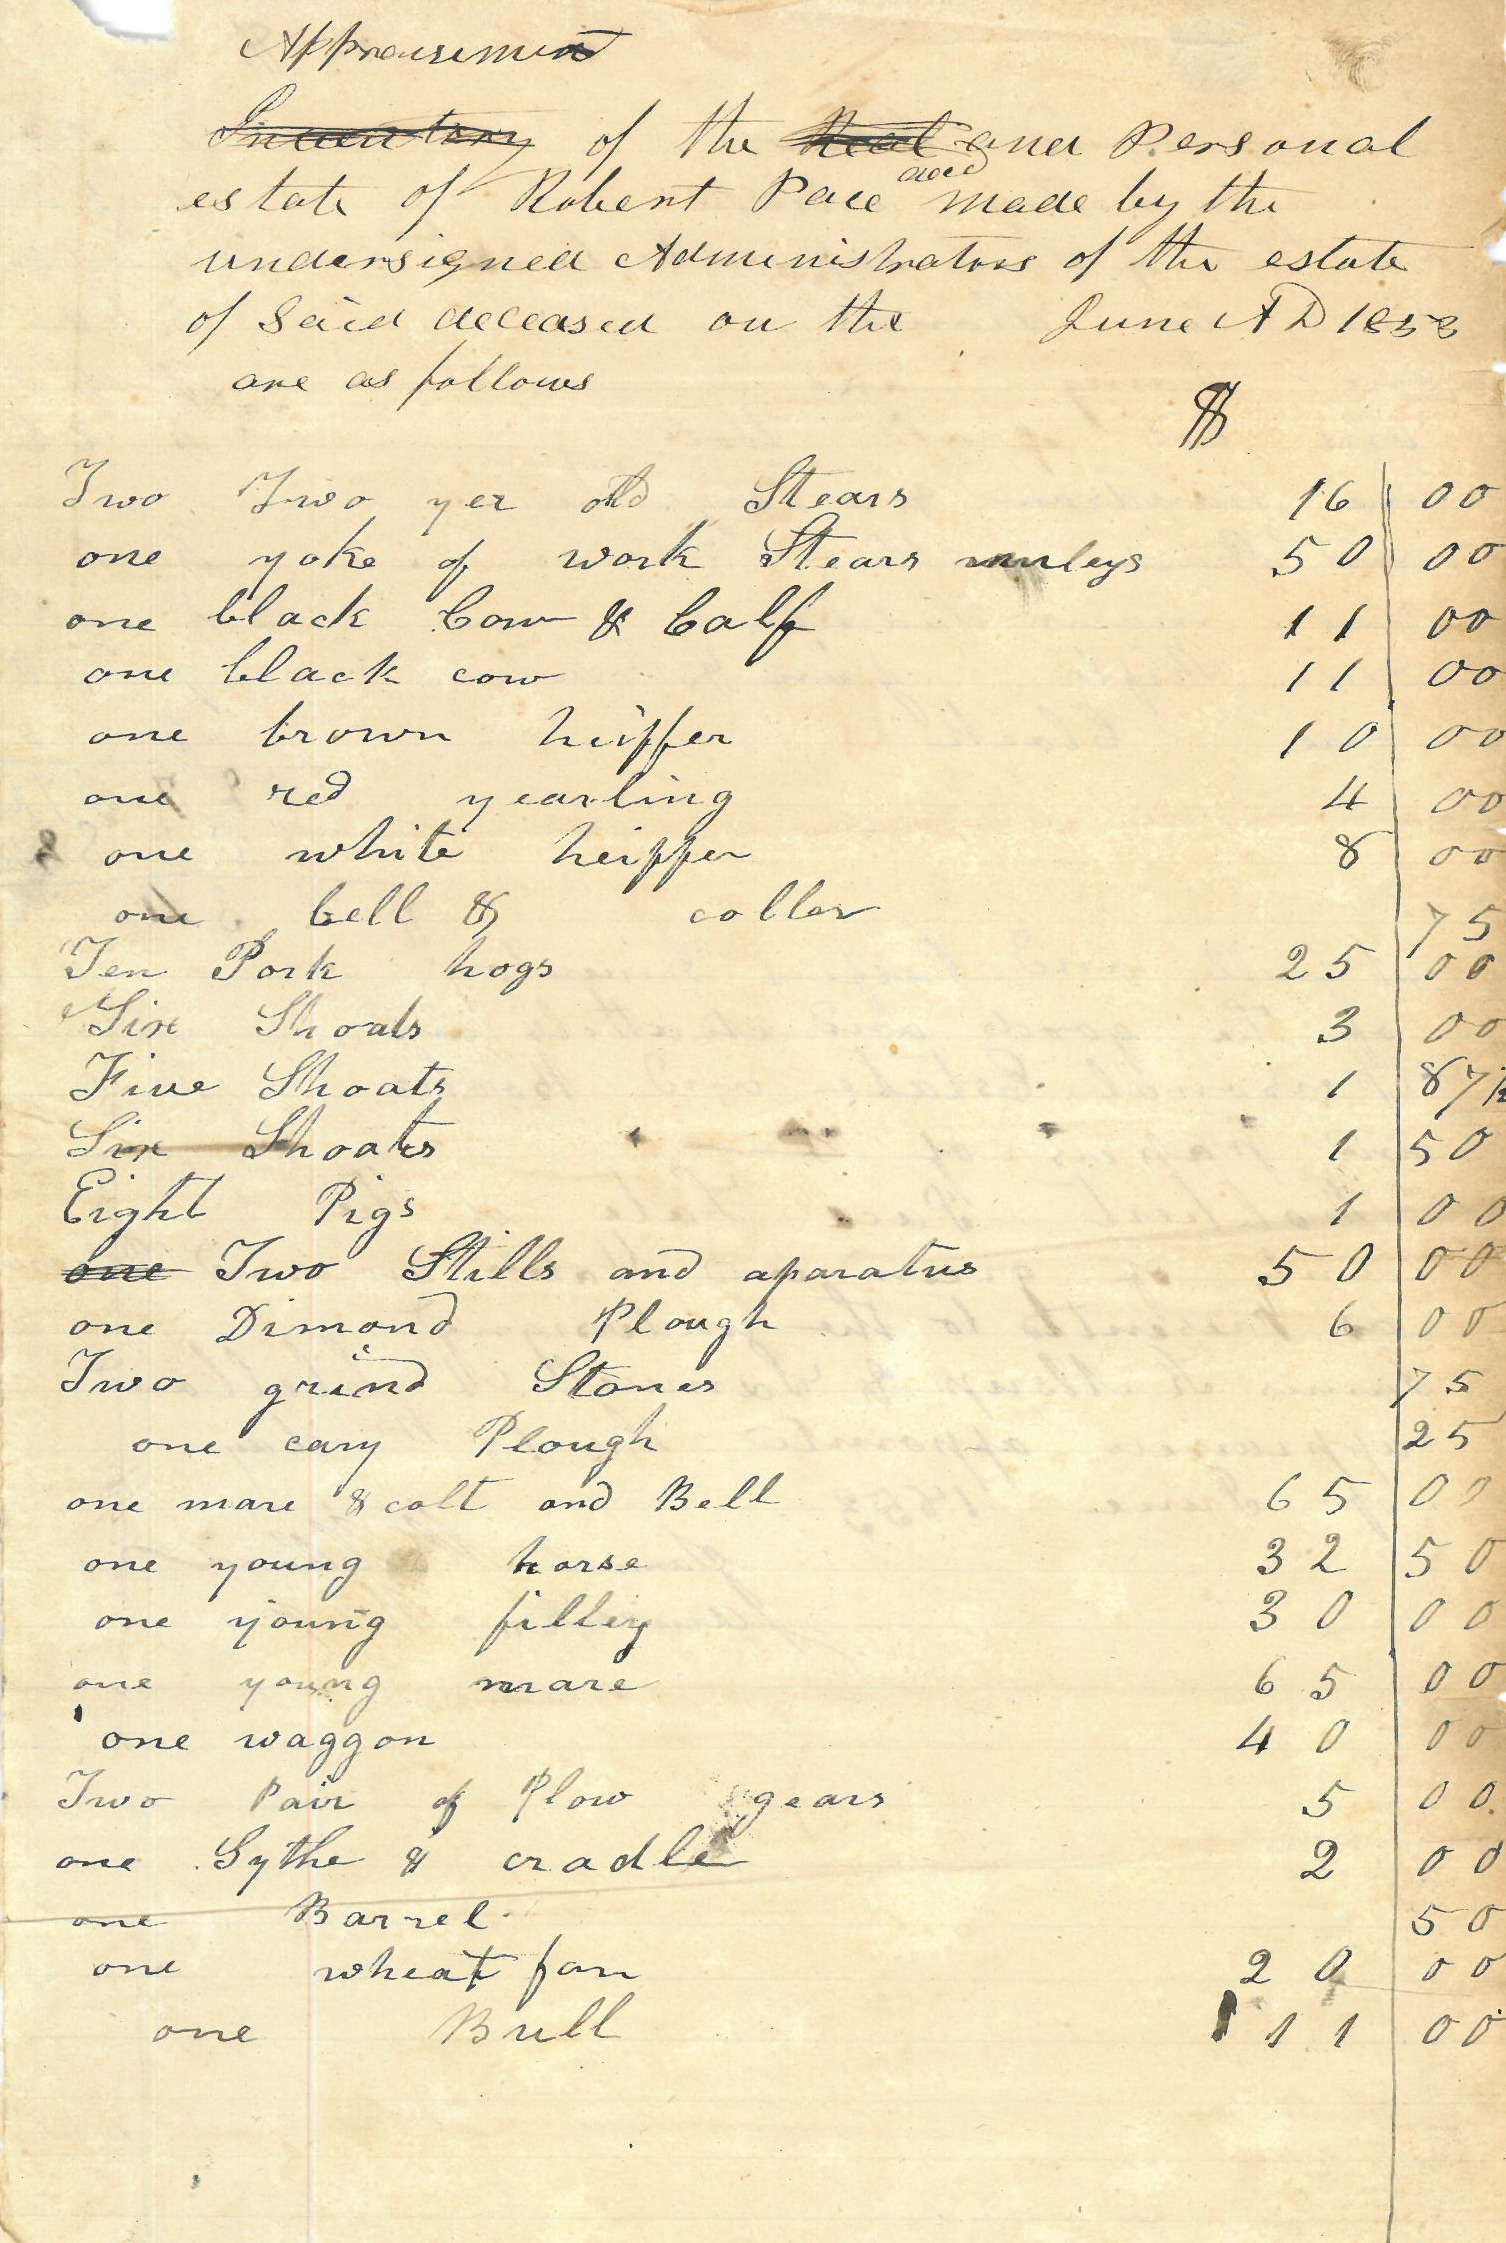 Appraisement
Inventory of the Real and Personal
decd
estate of Robert Pace made by the
undersigned Administrators of the estate
of Said deceased on the June AD 1853
are as follows
$
Two Two yer old Stears 16 00
one yoke of work Stears muleys 50 00
one black Cow & Calf 11 00
one black cow 11 00
one brown heiffer 10 00
one red yearling 4 00
one white heiffer 8 00
one bell & coller 75
Ten Pork hogs 25 00
Six Shoats 3 00
Five Shoats 1 87½
Six Shoats 1 50
Eight Pigs 1 00
one Two Stills and aparatus 50 00
one Dimond Plough 6 00
Two grind Stones 75
one cary Plough 25
one mare & colt and Bell 65 00
one young horse 32 50
one young filley 30 00
one young mare 65 00
one waggon 40 00
Two Pair of Plow gears 5 00
one Sythe & cradle 2 00
one Barrel 50
one wheat fan 20 00
one Bull 11 00